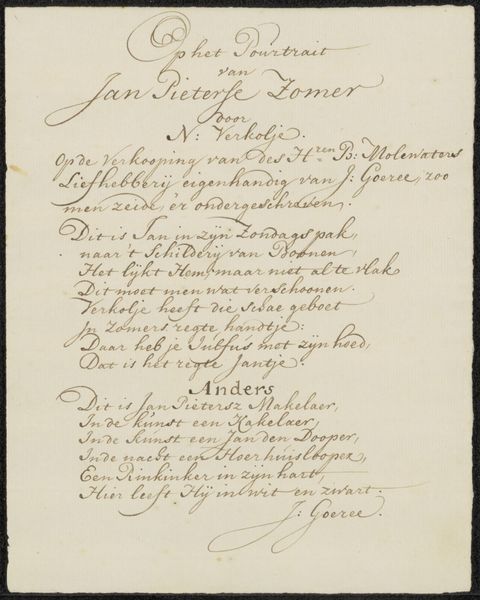 Op het Pourtrait
van
Jan Pieterse Zomer
door
N: Verkolje.
Op de verkooping van des H.ren B: Molewaters
Liefhebberij eigenhandig van J: Goeree, zoo
men zeide, er ondergeschreven.
Dit is Jan in zijn Zondags pak,
naar 't Schilderij van Boonen,
Het lijkt Hem, maar niet al te vlak
Dit moet men wat verschoonen.
Verkolje heeft die schae geboet
In Zomers regte handtje:
Daar heb je Julfus met zijn hoed,
Dat is het regte Jantje.
Anders
Dit is Jan Pietersz Makelaer,
In de kunst een Kakelaer,
In de Kunst een Jan den Dooper,
In de nacht een Hoerhuislooper,
Een Rinkinker in zijn hart,
Hier leeft Hij in wit en zwart.
J: Goeree.